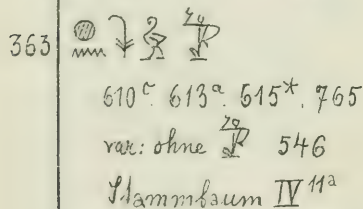 363 𓐍𓈖𓇓𓅱
610ᶜ. 613ᵃ. 615*. 765
var: ohne 546
Stammbaum IV 11a